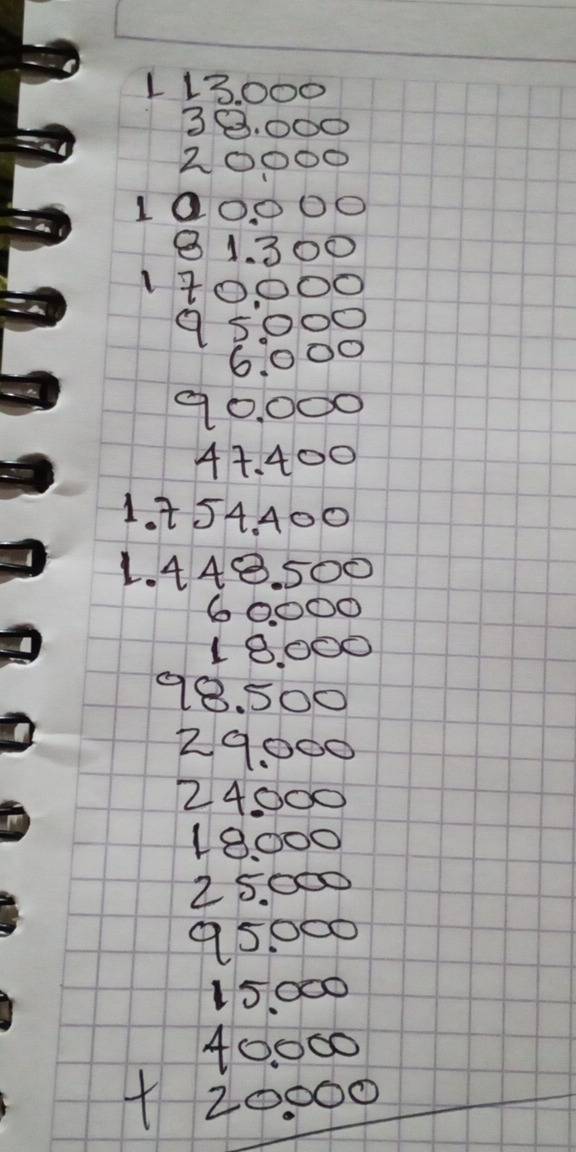 113.000
38.000
20.000
100.000
81.300
170.000
95.000
6.000
90.000
47.400
1.754.400
1.448.500
60.000
18.000
98.500
29.000
24.000
18.000
25.000
95.000
15.000
40.000
+ 20.000